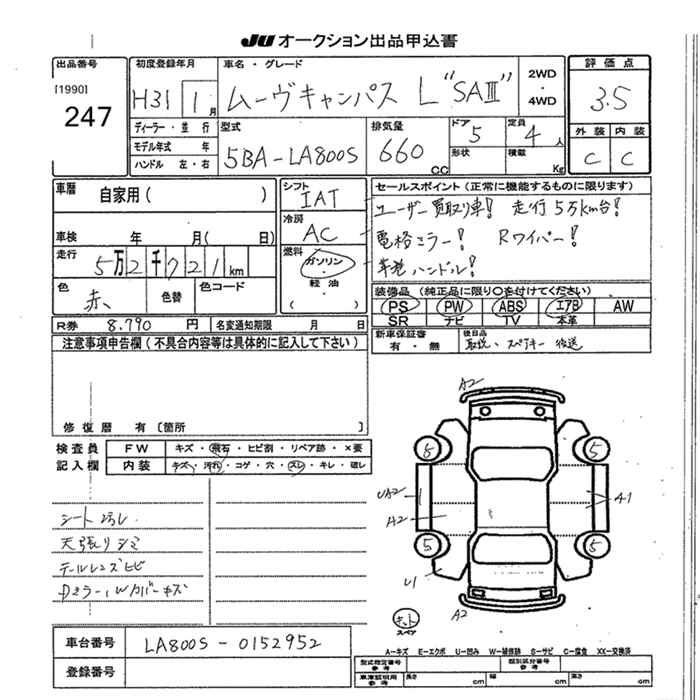 JU オークション出品申込書
出品番号 初度登録年月 車名・グレード 2WD・4WD 評価点
[1990]
247 H31 1月 ムーヴキャンバス L "SAⅢ" 3.5
ディーラー・並行 型式 排気量 ドア 定員 外装 内装
モデル年式 年 5BA-LA800S 660cc 5 4人 C C
ハンドル 左・右 形状 積載 Kg
車暦 自家用( ) シフト IAT セールスポイント(正常に機能するものに限ります)
冷房 AC ユーザー買取り車! 走行5万km台!
車検 年 月( 日) 電格ミラー! Rワイパー!
走行 5万2千721km 燃料 ガソリン・軽油・( ) 革巻ハンドル!
色 赤 色替 色コード 装備品(純正品に限り○を付けてください)
PS PW ABS エアB AW
R券 8.790円 名変通知期限 月 日 SR ナビ TV 本革
注意事項申告欄(不具合内容等は具体的に記入して下さい) 新車保証書 有・無 後日品 取説、スペアキー 後送
修復暦 有〔箇所 〕
検査員 FW キズ・飛石・ヒビ割・リペア跡・×要
記入欄 内装 キズ・汚れ・コゲ・穴・スレ・キレ・破レ
A2
5 5
UA2 A1
A2
シートヨゴレ
天張りシミ
テールレンズヒビ
Dミラー、Wカバーキズ
5 5
U1
A2
キット
スペア
車台番号 LA800S-0152952
A-キズ E-エクボ U-凹み W-補修跡 S-サビ C-腐食 XX-交換済
登録番号 型式指定番号 参考 類別区分番号 参考
車庫証明用 参考 長さ cm 幅 cm 高さ cm